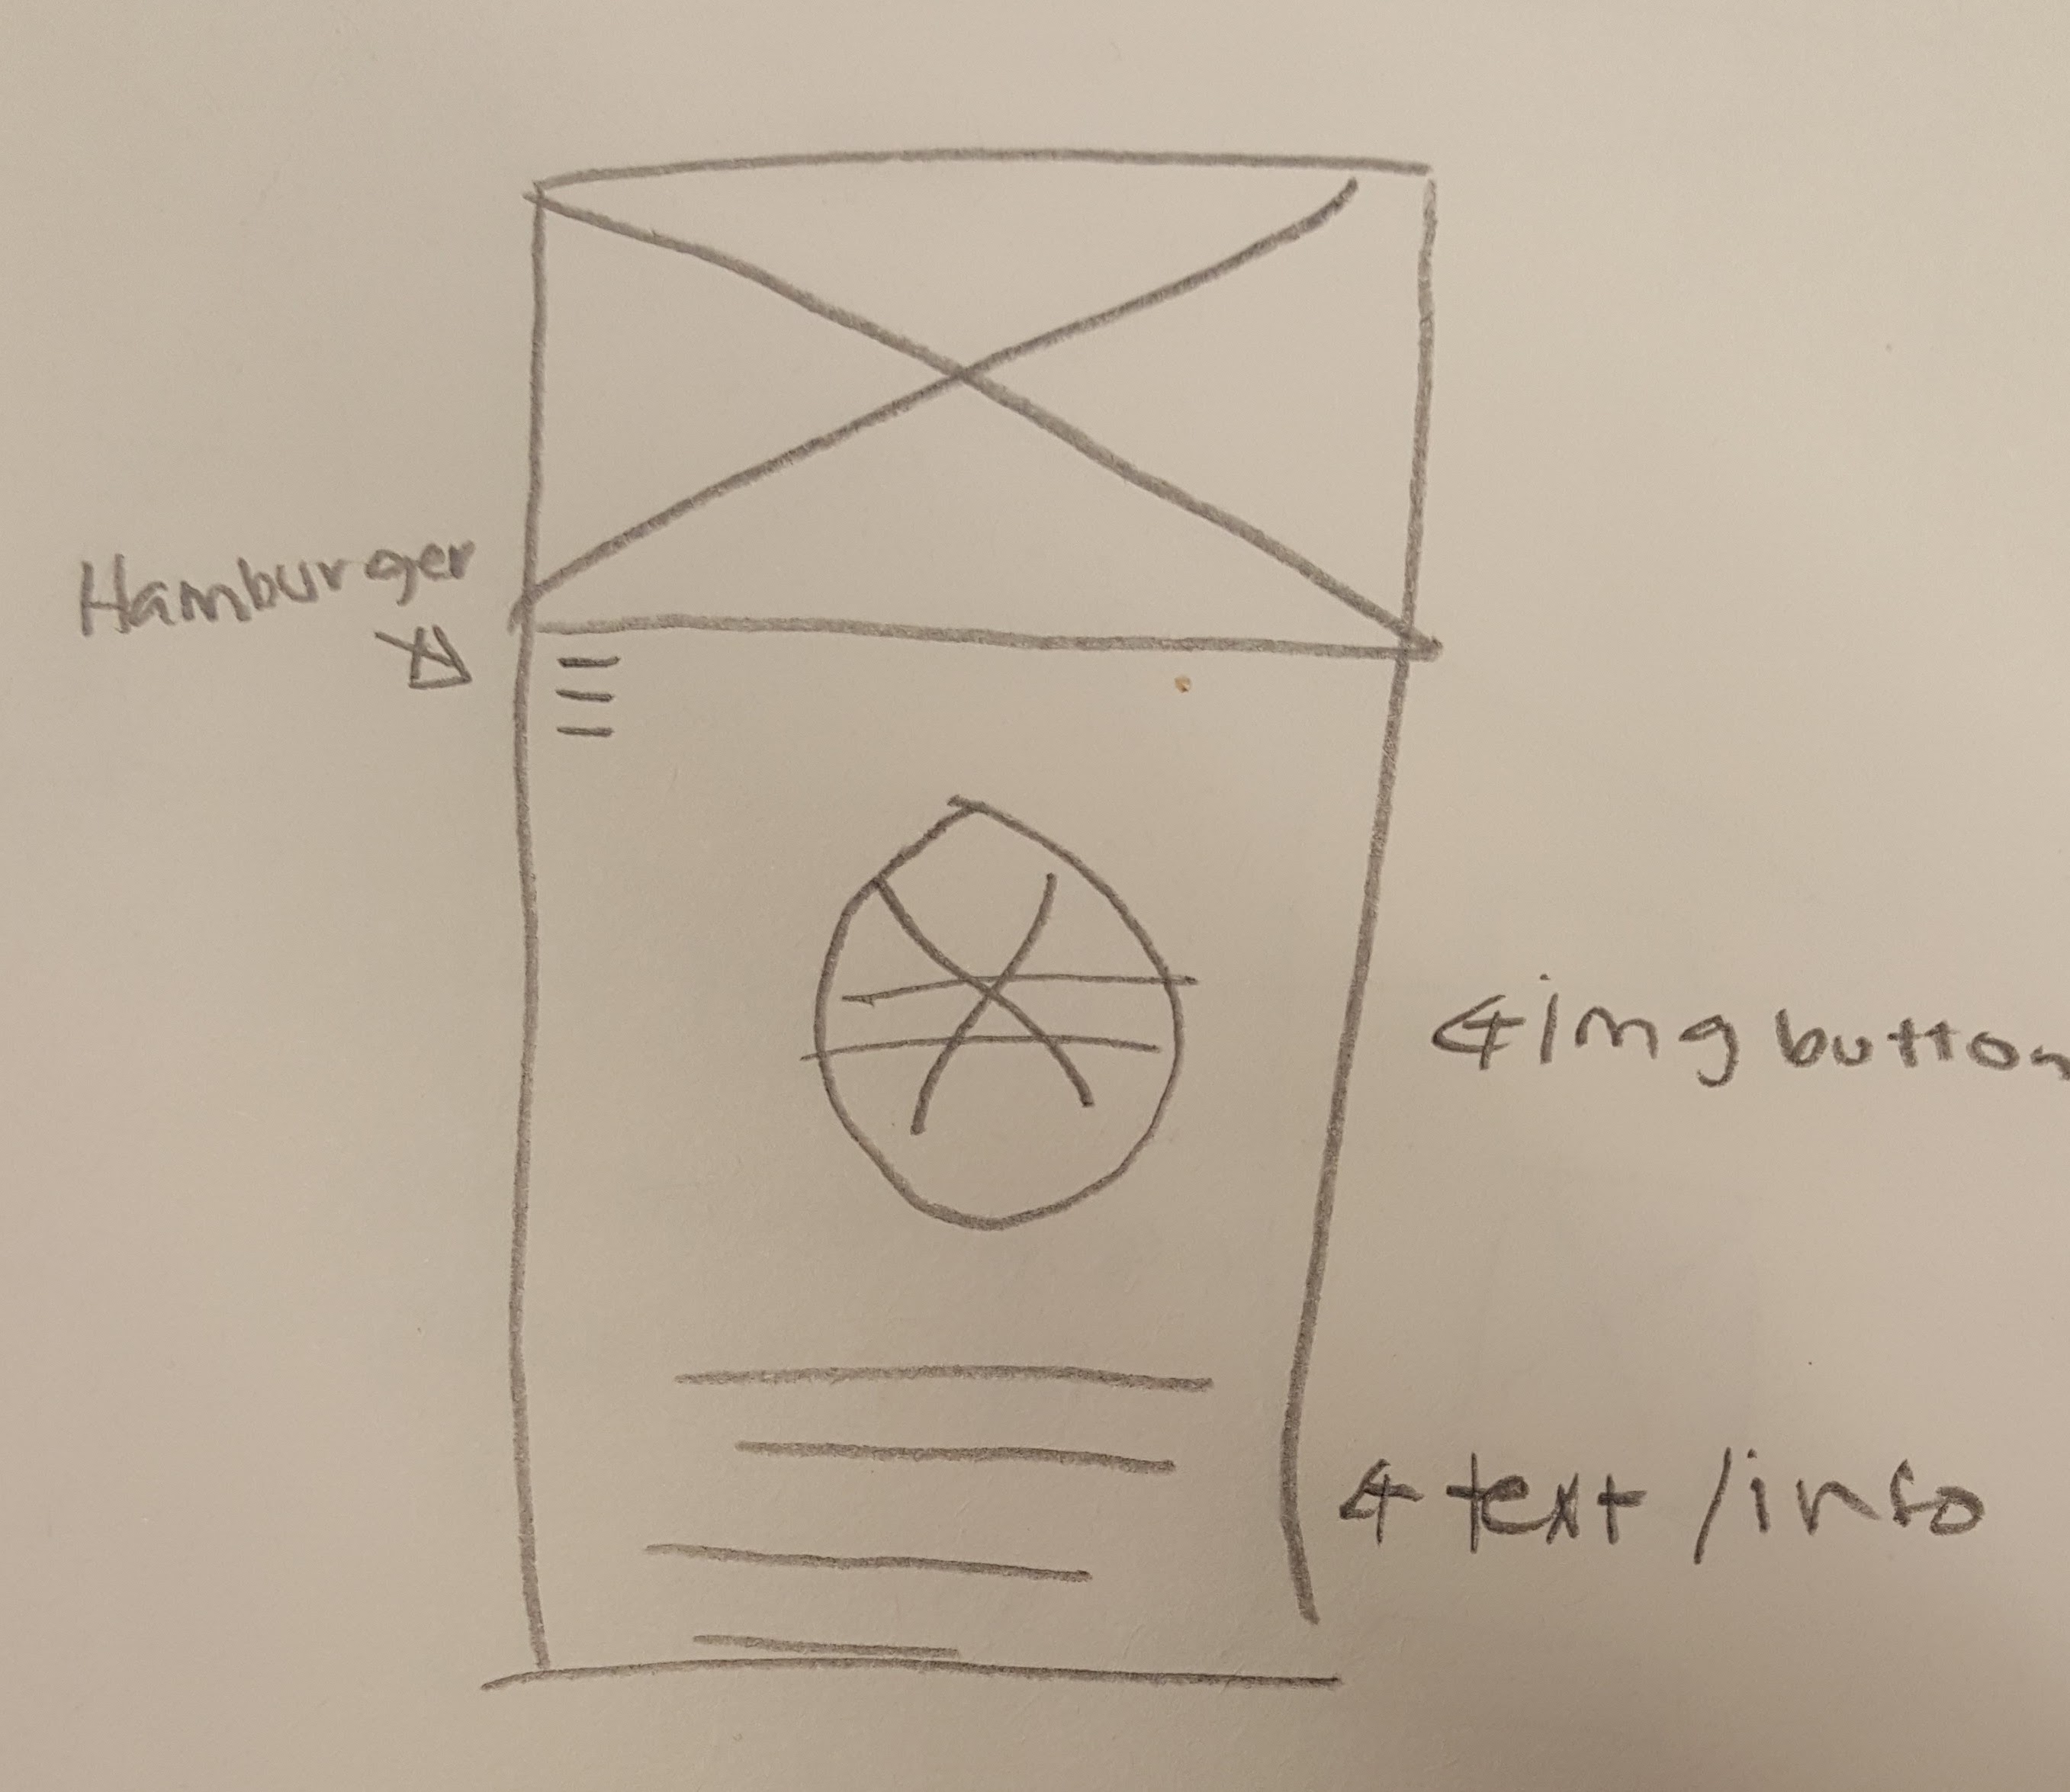 Hamburger
img button
text / info